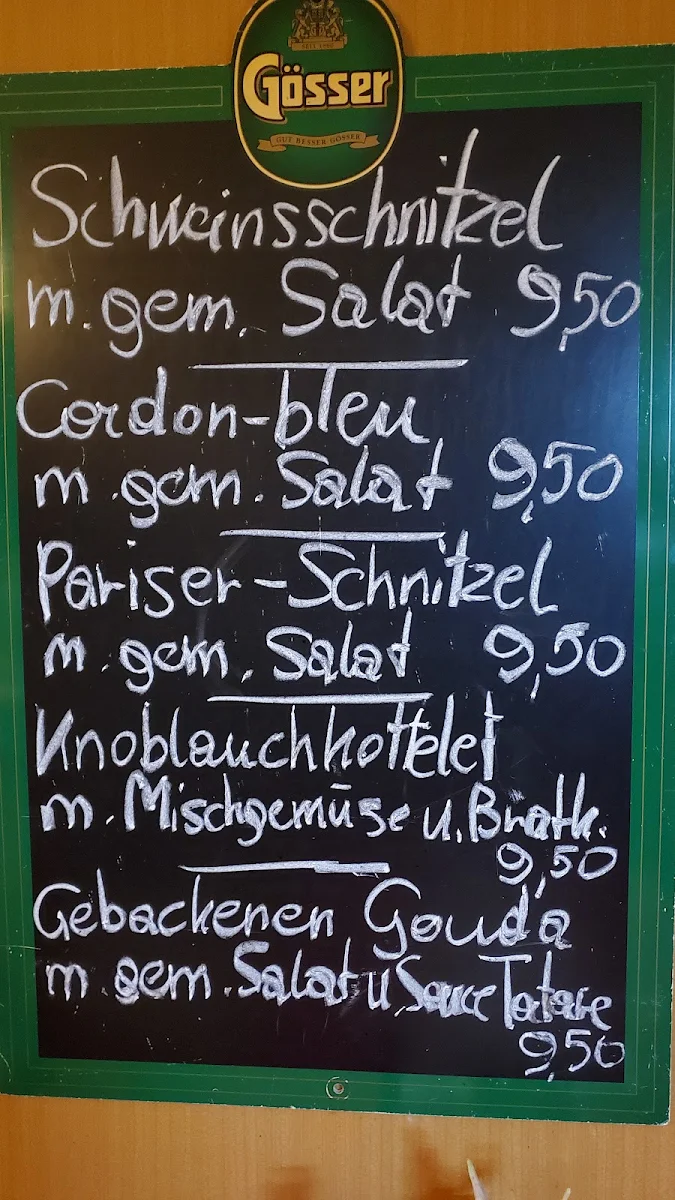 SEIT 1860
Gösser
GUT BESSER GÖSSER
Schweinsschnitzel
m. gem. Salat 9,50
Cordon-bleu
m. gem. Salat 9,50
Pariser-Schnitzel
m. gem. Salat 9,50
Knoblauchkottelet
m. Mischgemüse u. Bratk.
9,50
Gebackenen Gouda
m. gem. Salat u. Sauce Tatare
9,50